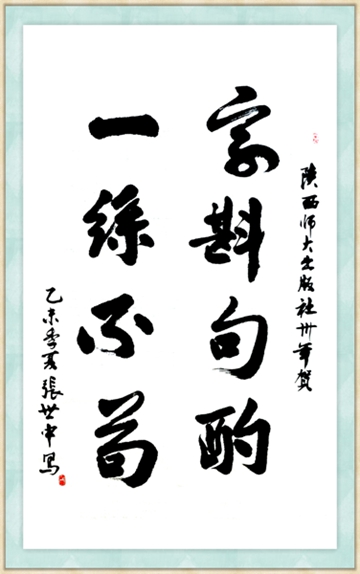 陕西师大出版社卅年贺
字斟句酌
一丝不苟
乙未季夏张世中写